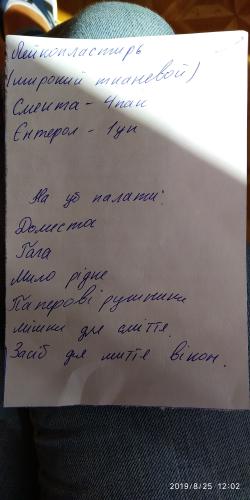 Лейкопластирь
(широкий тканевой)
Смекта - 4пак
Єнтерол - 1уп
На уб палати:
Доместа
Гага
Мило рідке
Паперові рушники
мішки для сміття.
Засіб для миття вікон.
2019/8/25 12:02